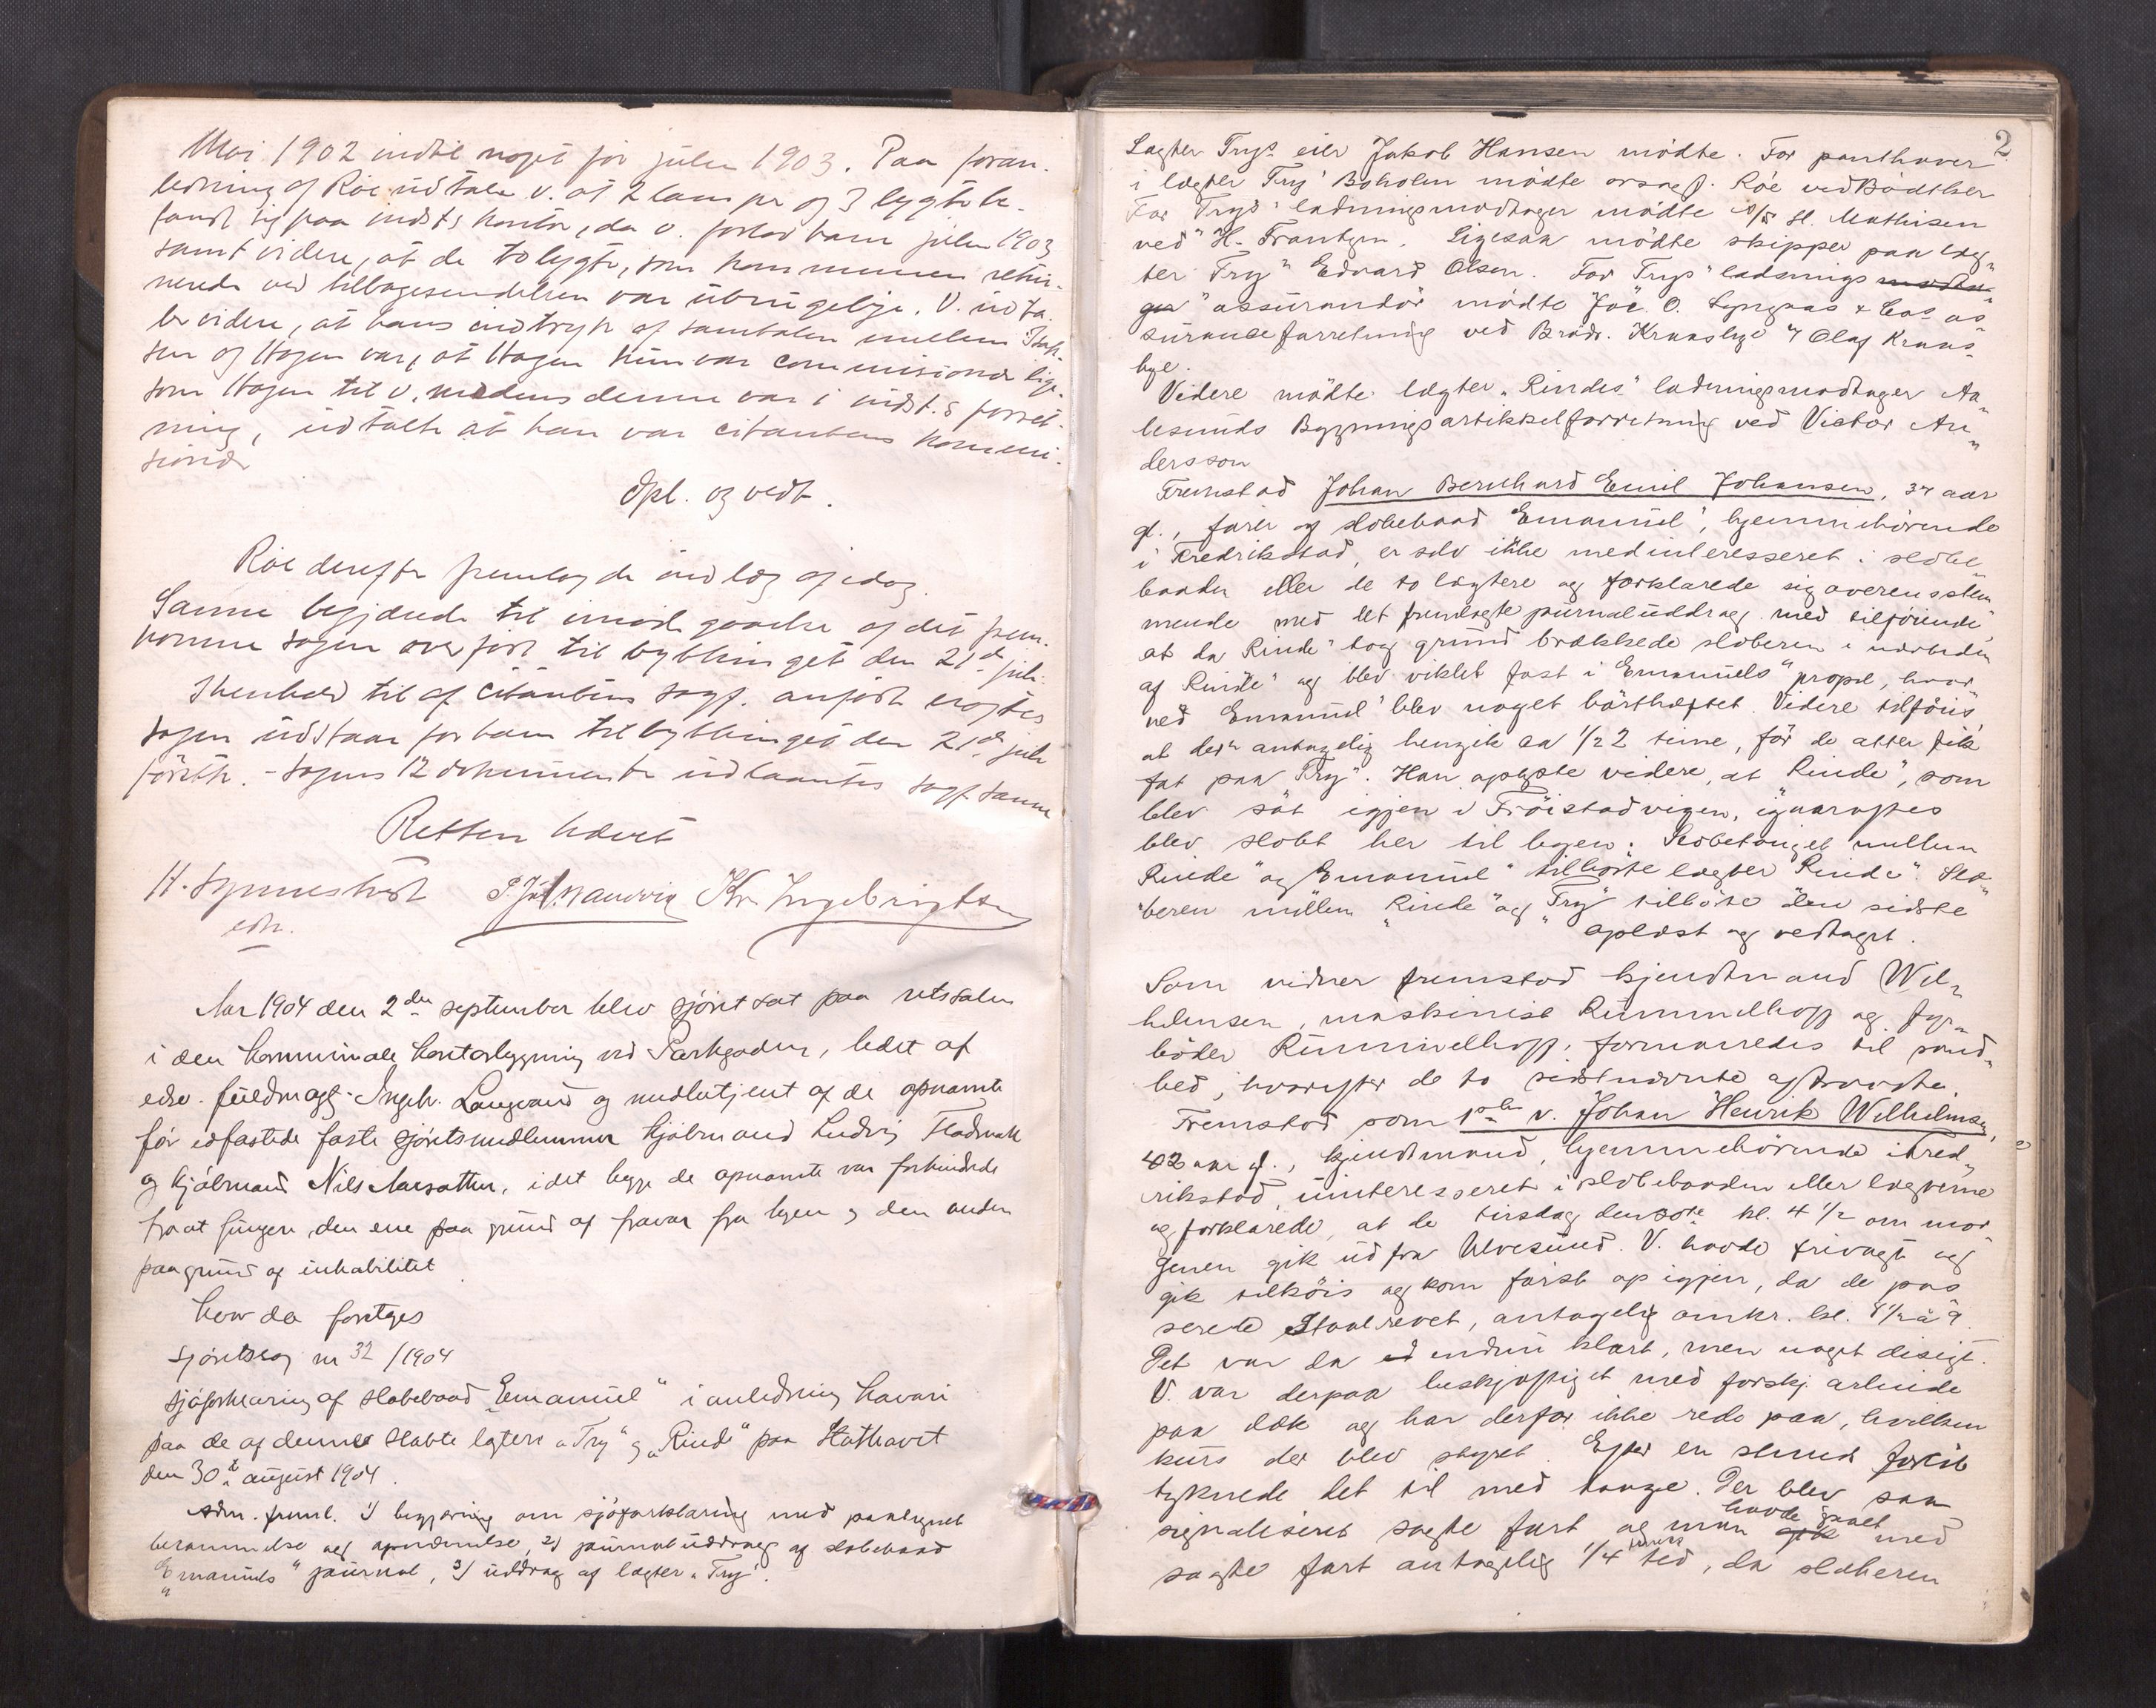 Mai 1902 indtil noget før julen 1903. Paa foran-
ledning af Röe udtaler v. at 2 lamper og 3 lygter be-
fandt sig paa indst.s kontor, da v. forlod ham julen 1903
samt videre, at de to lygter, som kommunen retur-
nerede ved tilbagesendelsen var übrugelige. V. udta-
ler videre, at hans indtryk af samtalen mellem
sen og Hagen var, at Hagen kun var commisionær lige-
som Hagen til v. medens denne var i indst.s forret-
ning, udtalte at han var citantens kommi-
sionær
Opl. og vedt.
Röe derefter fremlagde indlæg af idag.
Sanne begjærede til imødegaaelse af det frem-
komne sagen overført til bythinget den 21de juli.
I henhold til af citantens sagf. anført eragtes
sagen udstaar for ham til bythinget den 21de juli
förstk. - Sagens 12 dokumenter udlaantes sagf. Sanne
Retten hævet
H. Synnestvedt Kr. Ingebrigtsen
edsv.
Aar 1904 den 2den september blev sjöret sat paa retssalen
i den kommunale kontorbygning ved Parkgaden, ledet af
edsv. fuldmægt. Ingebr. Langeland og medbetjent af de opnævnte
før edfæstede faste sjöretsmedlemmer kjöbmand Ludvig Flodmark
og kjöbmand Nils Aarsæther, idet begge de opnævnte var forhindrede
fra at fungere, den ene paa grund af fravær fra byen og den anden
paa grund af inhabilitet
hvor da foretoges
Sjöretssag nr 32/1904
Sjöforklaring af slæbebaad "Emanuel" i anledning havari
paa de af denne slæbte lægtere "Try" og "Rinde" paa Stathavet
den 30te august 1904.
Adm. freml. 1) begjæring om sjöforklaring med paategnet
berammelse og opnævnelse, 2) journaluddrag af slæbebaad
"Emanuels" journal, 3) uddrag af lægter "Try".
2
Lægter Trys eier Jakob Hansen mödte. For panthaver
i lægter "Try" Boholm mödte orsagf. Röe ved Bödtker
For "Trys" ladningsmodtager mödte H. Mathisen
ved H. Frantzen. Ligesaa mödte skipper paa læg-
ter "Try" Edvard Olsen. For "Trys" ladnings modta-
ger assurandör mödte Joc. O. Lyngaas & Cos as-
suranceforretning ved Brödr. Kraasbye v/ Olaf Kraas-
bye.
Videre mödte lægter "Rindes" ladningsmodtager Aa-
lesunds Bygningsartikkelforretning ved Victor An-
dersson
Fremstod Johan Bernhard Emil Johansen, 37 aar
gl., förer af slæbebaad "Emanuel", hjemmehörende
i Fredrikstad, er selv ikke medinteresseret i slæbe-
baaden eller de to lægtere og forklarede sig overensstem-
mende med det fremlagte journaluddrag med tilföiende
at da "Rinde" tog grund brækkede slæberen i nærheden
af "Rinde" og blev viklet fast i "Emanuels" propel, hvor-
ved "Emanuel" blev noget borthæftet. Videre tilföies
at der antagelig hengik ca 1/2 2 time, för de atter fik
fat paa "Try". Han oplyste videre, at "Rinde", som
blev sat igjen i Fröistadvigen, igaaraftes
blev slæbt her til byen. Slæbetöuget mellem
"Rinde" og "Emanuel" tilhörte lægter "Rinde". Slæ-
beren mellem "Rinde" og "Try" tilhörte den sidste
oplæst og vedtaget.
Som vidner fremstod kjendtmand Wil-
helmsen, maskinist Rümmelhoff og fyr-
böder Rümmelhoff, formanedes til sand-
hed, hvorefter de to sidstnævnte aftraadte.
Fremstod som 1ste v. Johan Henrik Wilhelmsen,
42 aar gl., kjendtmand, hjemmehörende i Fred-
rikstad, uinteresseret i slæbebaaden eller lægterne
og forklarede, at de tirsdag den 30te kl. 4 1/2 om mor-
genen gik ud fra Ulvesund. V. havde frivagt og
gik tilköis og kom först op igjen, da de pas-
serede Staalrevet, antagelig omkr. kl. 8 1/2 à 9.
Det var da endnu klart, men noget disigt.
V. var derpaa beskjæftiget med forskj. arbeide
paa dæk og har derfor ikke rede paa, hvilken
kurs der blev styret. Efter en stund forlöb
tyknede det til med taage. Der blev saa
signaliseret sagte fart og man havde gaaet med
sagte fart antagelig 1/4 times tid, da slæberen